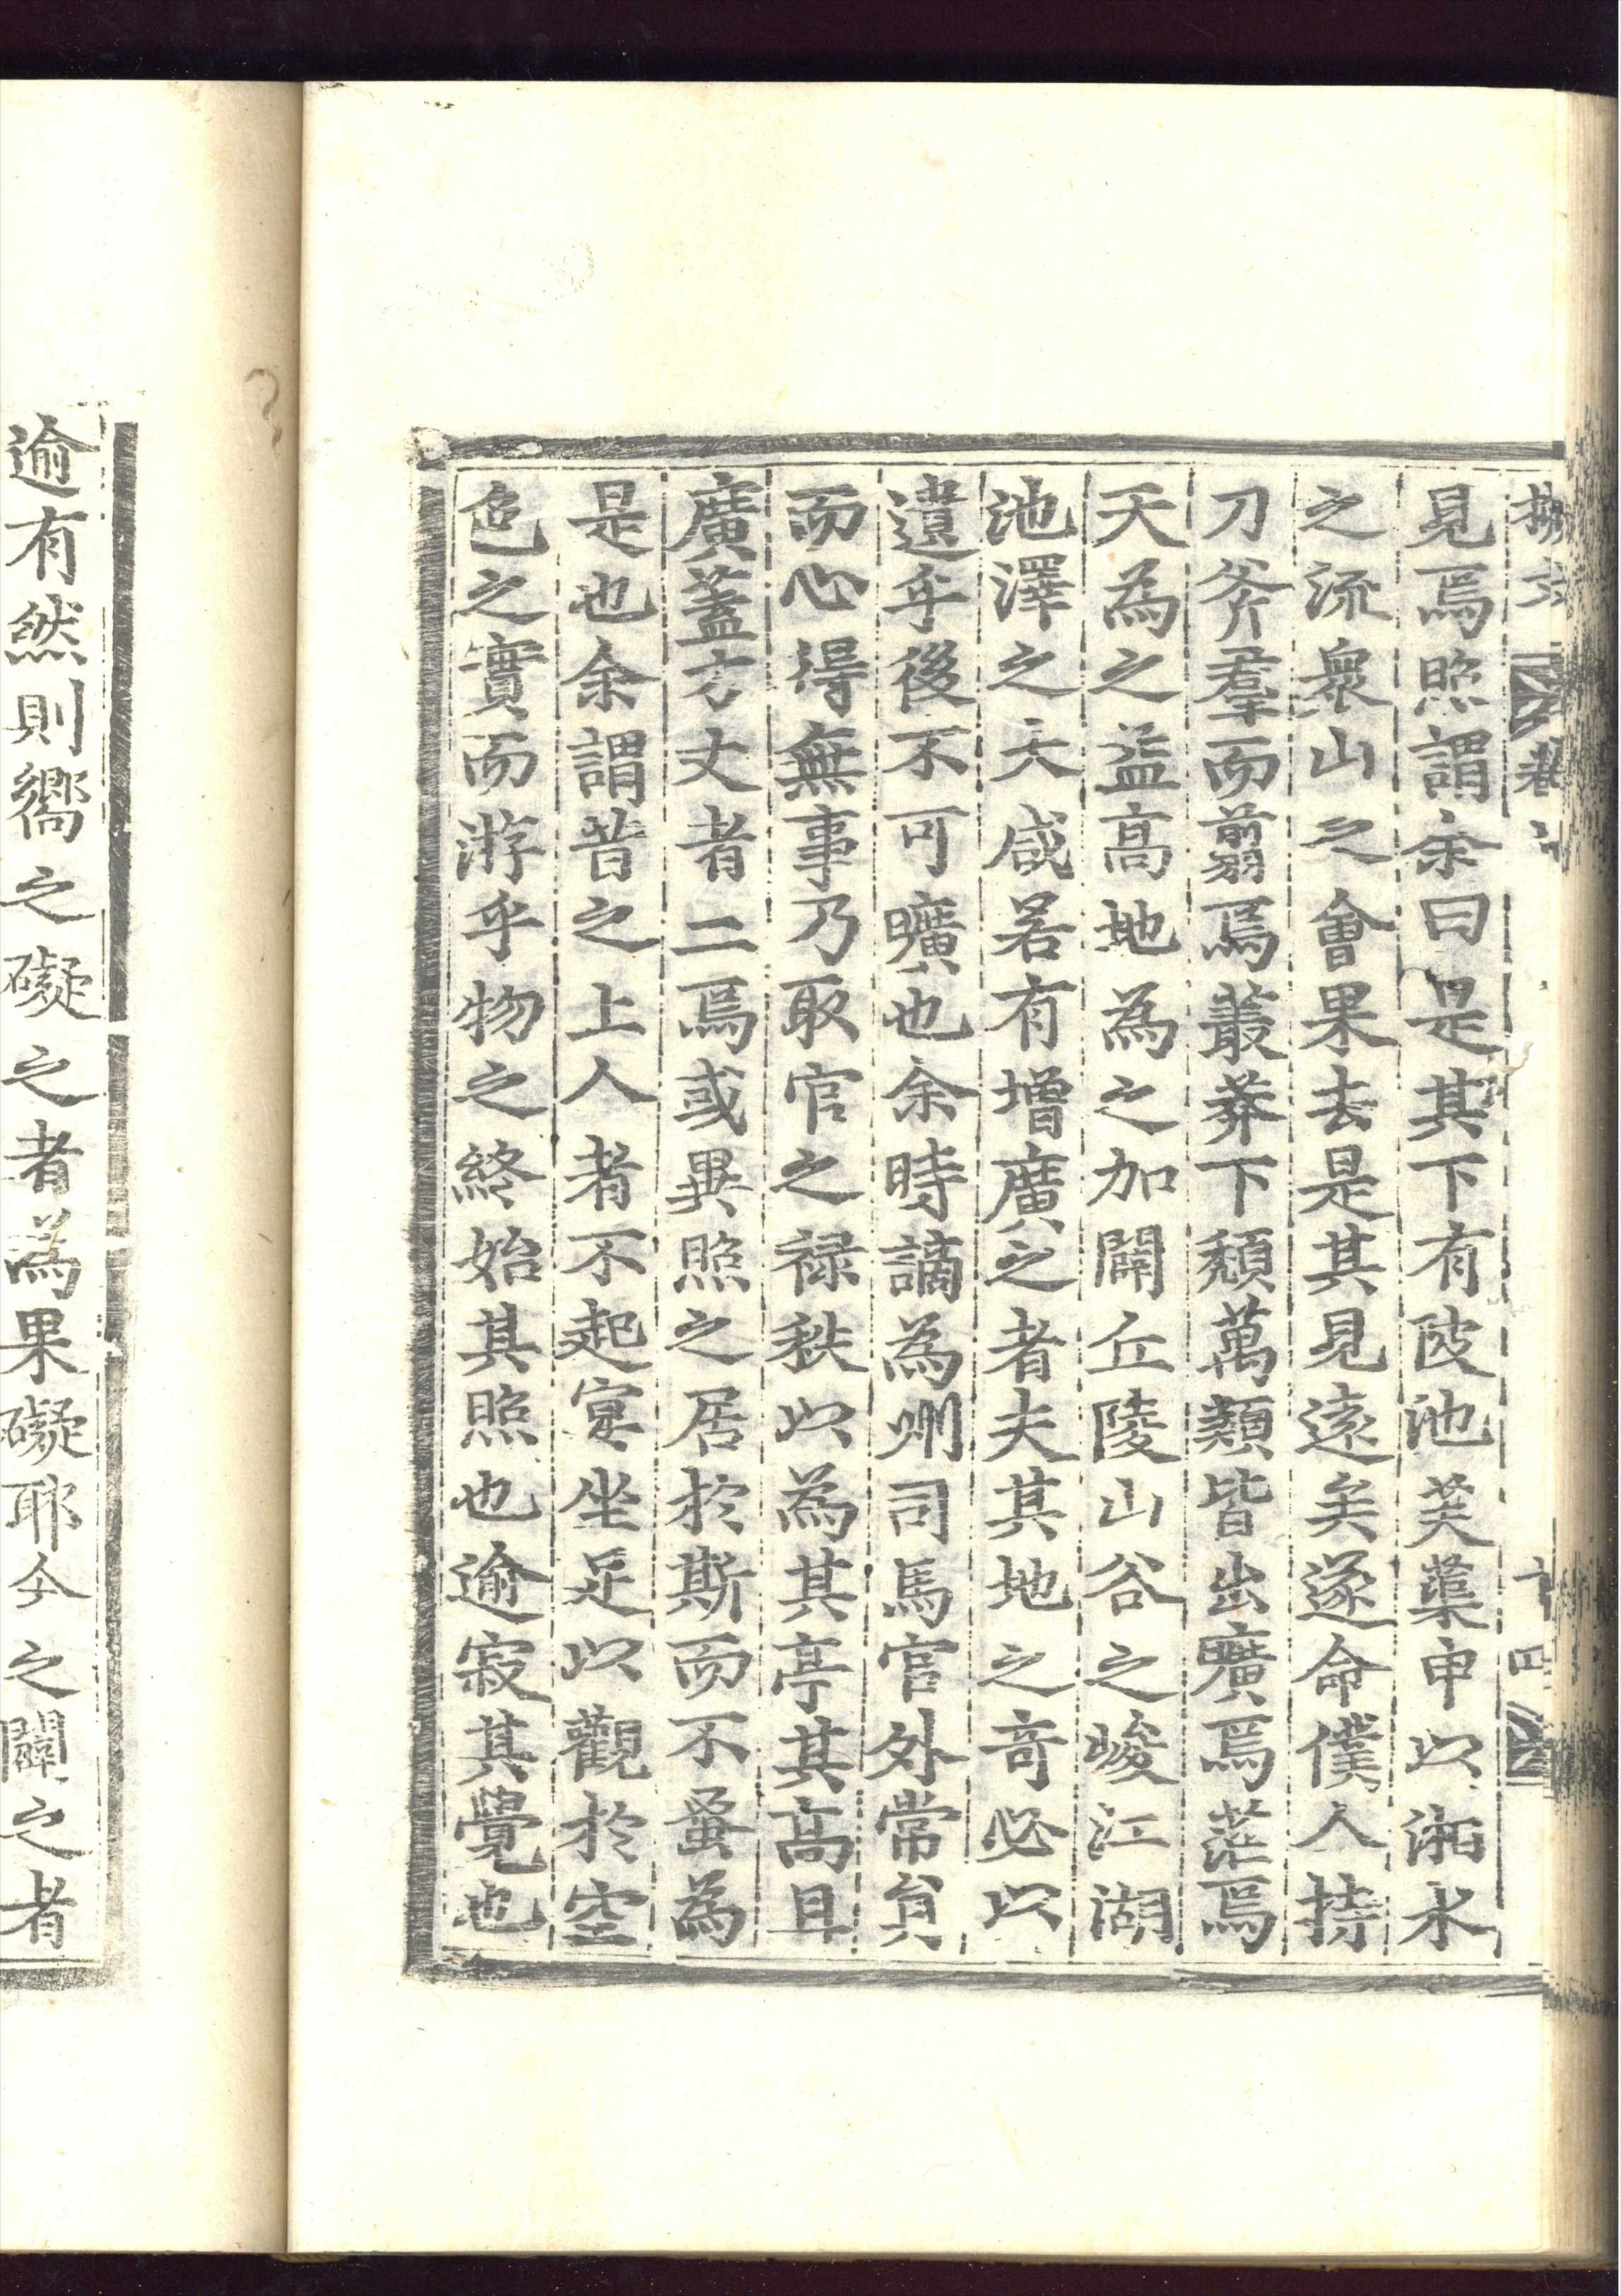 見焉照謂余曰是其下有陂池芙蕖申以湘水
之流衆山之會果去是其見遠矣遂命僕人持
刀斧羣而翦焉叢莽下頹萬類皆出曠焉茫焉
天為之益高地為之加闢丘陵山谷之峻江湖
池澤之大咸若有增廣之者夫其地之奇必以
遺乎後不可曠也余時謫為州司馬官外常負
而心得無事乃取官之祿秩以為其亭其高且
廣蓋方丈者二焉或異照之居於斯而不蚤為
是也余謂昔之上人者不起宴坐足以觀於空
色之實而游乎物之終始其照也逾寂其覺也
逾有然則嚮之礙之者為果礙耶今之闢之者